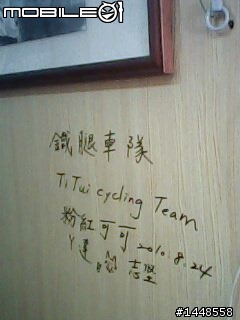 MOBILE01
鐵腿車隊
TiTui cycling Team
粉紅可可 2010.8.24
丫達 志堅
#1448558